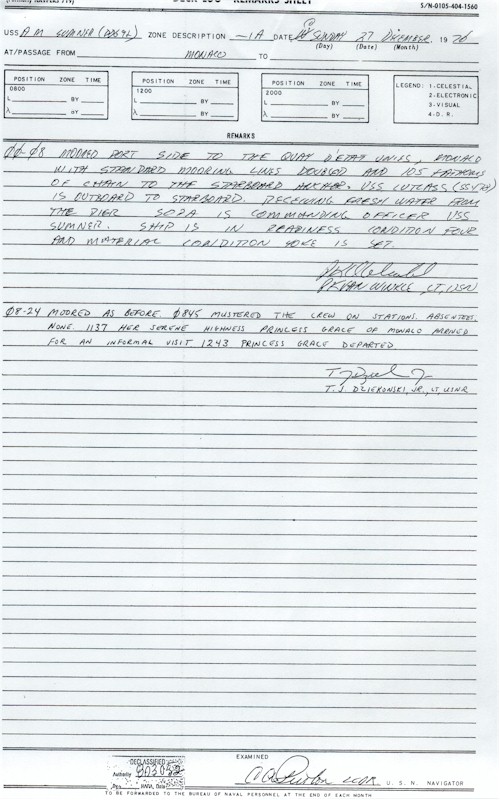 DECK LOG - REMARKS SHEET
S/N-0105-404-1560
USS A.M. SUMNER (DD692) ZONE DESCRIPTION -1A DATE SUNDAY 27 DECEMBER 1970
(Day) (Date) (Month)
AT/PASSAGE FROM MONACO TO
POSITION ZONE TIME
0800
L BY
λ BY
POSITION ZONE TIME
1200
L BY
λ BY
POSITION ZONE TIME
2000
L BY
λ BY
LEGEND: 1-CELESTIAL
2-ELECTRONIC
3-VISUAL
4-D.R.
REMARKS
00-08 MOORED PORT SIDE TO THE QUAY D'ETAT UNIS, MONACO
WITH STANDARD MOORING LINES DOUBLED AND 105 FATHOMS
OF CHAIN TO THE STARBOARD ANCHOR. USS CUTLASS (SS478)
IS OUTBOARD TO STARBOARD. RECEIVING FRESH WATER FROM
THE PIER SOPA IS COMMANDING OFFICER USS
SUMNER. SHIP IS IN READINESS CONDITION FOUR
AND MATERIAL CONDITION YOKE IS SET.
VAN WINKLE, LT, USN
08-24 MOORED AS BEFORE. 0845 MUSTERED THE CREW ON STATIONS. ABSENTEES.
NONE. 1137 HER SERENE HIGHNESS PRINCESS GRACE OF MONACO ARRIVED
FOR AN INFORMAL VISIT 1243 PRINCESS GRACE DEPARTED.
T. J. DZIEKONSKI, JR., LT, USNR
DECLASSIFIED
Authority 803052
By NARA, Date
EXAMINED
LCDR U. S. N. NAVIGATOR
TO BE FORWARDED TO THE BUREAU OF NAVAL PERSONNEL AT THE END OF EACH MONTH